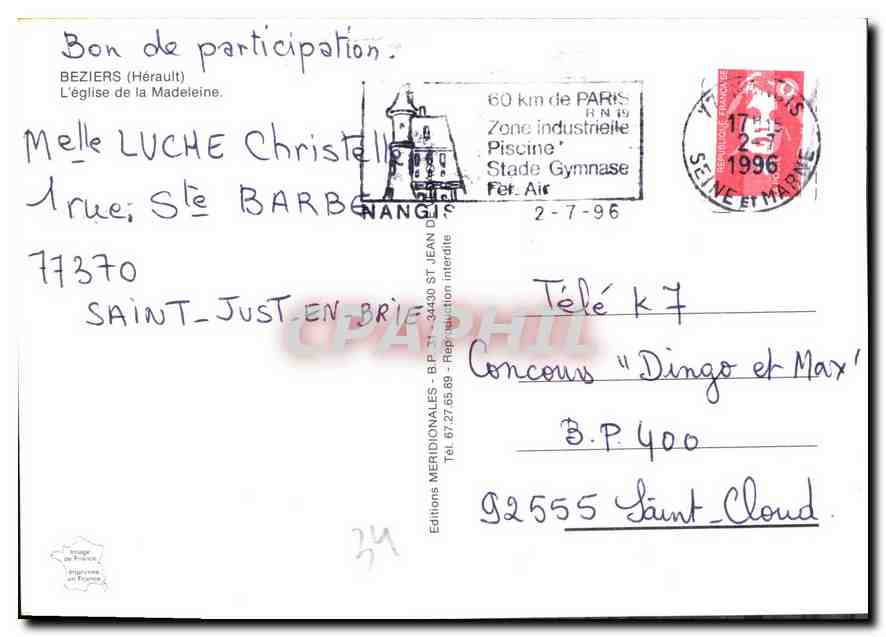 Bon de participation.
BEZIERS (Hérault)
L'église de la Madeleine.
Melle LUCHE Christelle
1 rue; Ste BARBE
77370
SAINT-JUST-EN-BRIE
NANGIS
60 km de PARIS
R N 19
Zone industrielle
Piscine
Stade Gymnase
Fer. Air
2-7-96
17H15
2-7
1996
SEINE ET MARNE
REPUBLIQUE FRANÇAISE
Editions MERIDIONALES - B.P. 31 - 34430 ST JEAN DE
Tél. 67.27.65.89 - Reproduction interdite
Télé K7
Concours "Dingo et Max"
B.P. 400
92555 Saint-Cloud.
34
Image
de France
Imprimée
en France
CPAPHIL